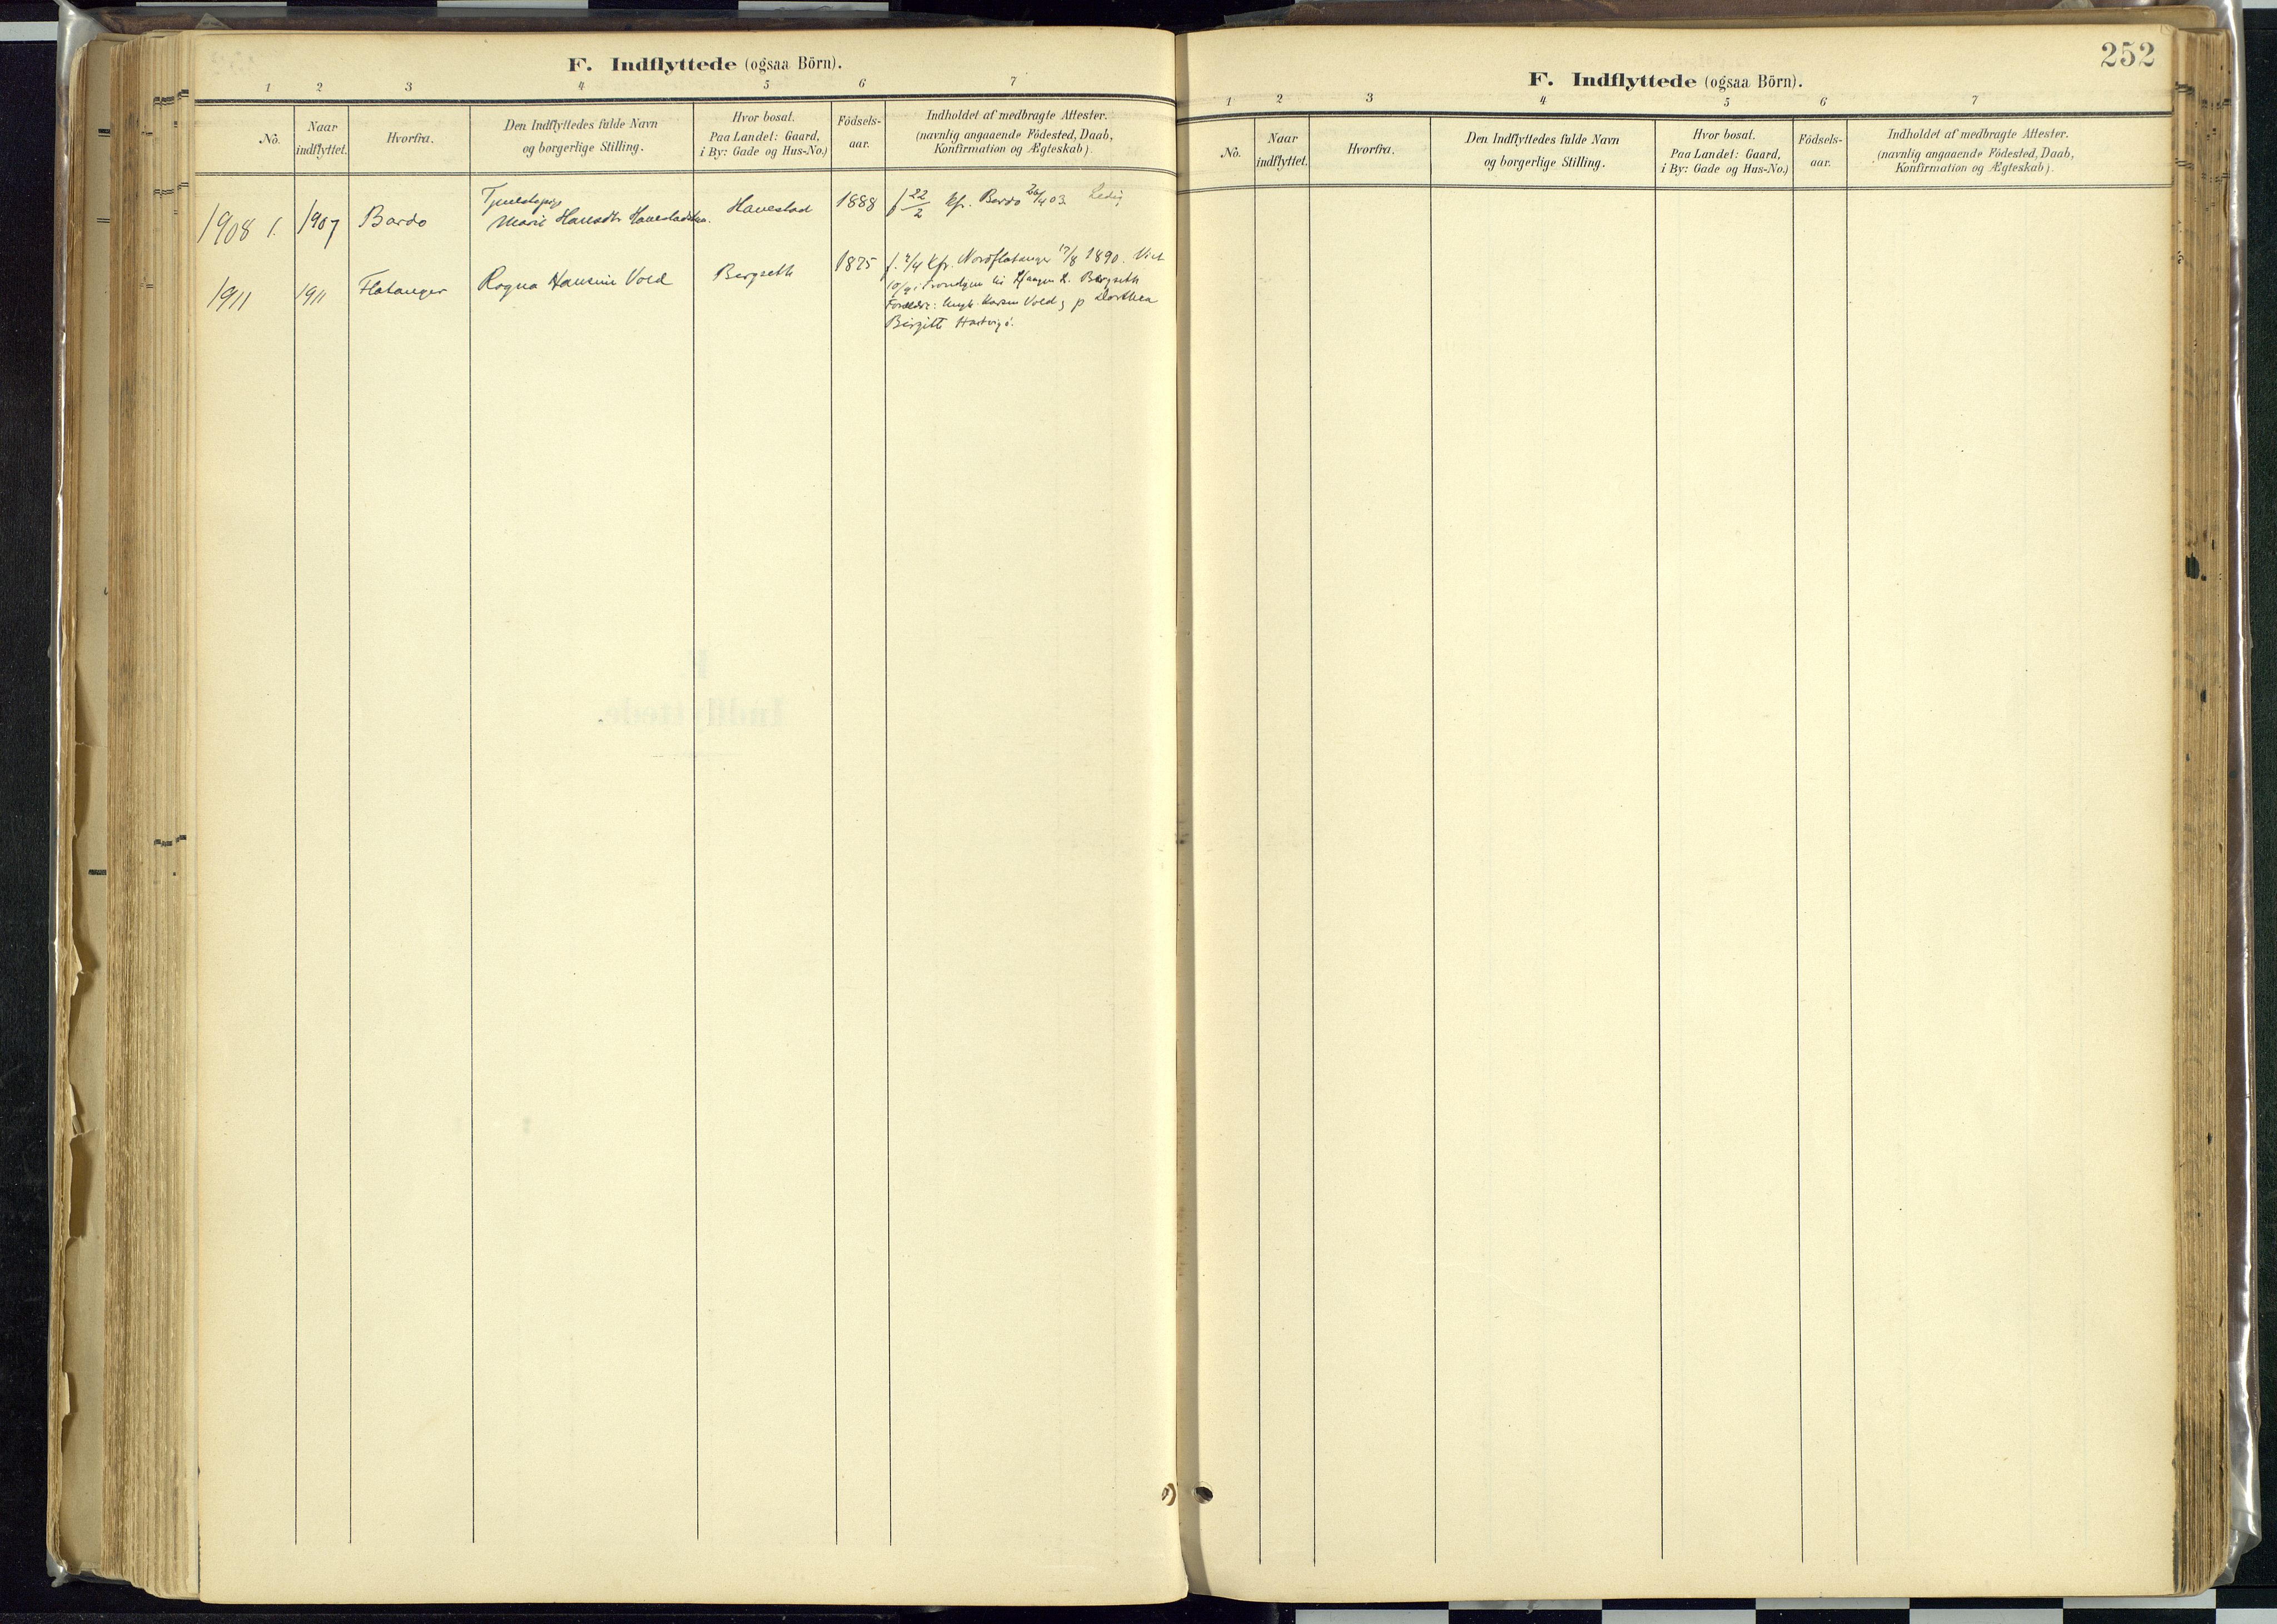 F. Indflyttede (ogsaa Börn).
1 2 3 4 5 6 7
No.
Naar indflyttet.
Hvorfra.
Den Indflyttedes fulde Navn
og borgerlige Stilling.
Hvor bosat.
Paa Landet: Gaard,
i By: Gade og Hus-No.)
Födsels-
aar.
Indholdet af medbragte Attester.
(navnlig angaaende Födested, Daab,
Konfirmation og Ægteskab).
1908 1. 1907 Bardo
Marie Hansdtr Hanestad
Hanestad 1888 f 22/2 kfr. Bardo 26/4 03. Ledig
1911 1911 Flatanger Ragna Hansine Vold Bergseth 1875 f. 7/4 kfr. Nordflatanger 17/8 1890. Viet
10/9 i Trondhjem til Haagen L. Bergseth
Forældre: Karsen Vold og p Dorthea
Birgitte Hartvigs.
252
F. Indflyttede (ogsaa Börn).
1 2 3 4 5 6 7
No.
Naar
indflyttet.
Hvorfra.
Den Indflyttedes fulde Navn
og borgerlige Stilling.
Hvor bosat.
Paa Landet: Gaard,
i By: Gade og Hus-No.)
Födsels-
aar.
Indholdet af medbragte Attester.
(navnlig angaaende Födested, Daab,
Konfirmation og Ægteskab).